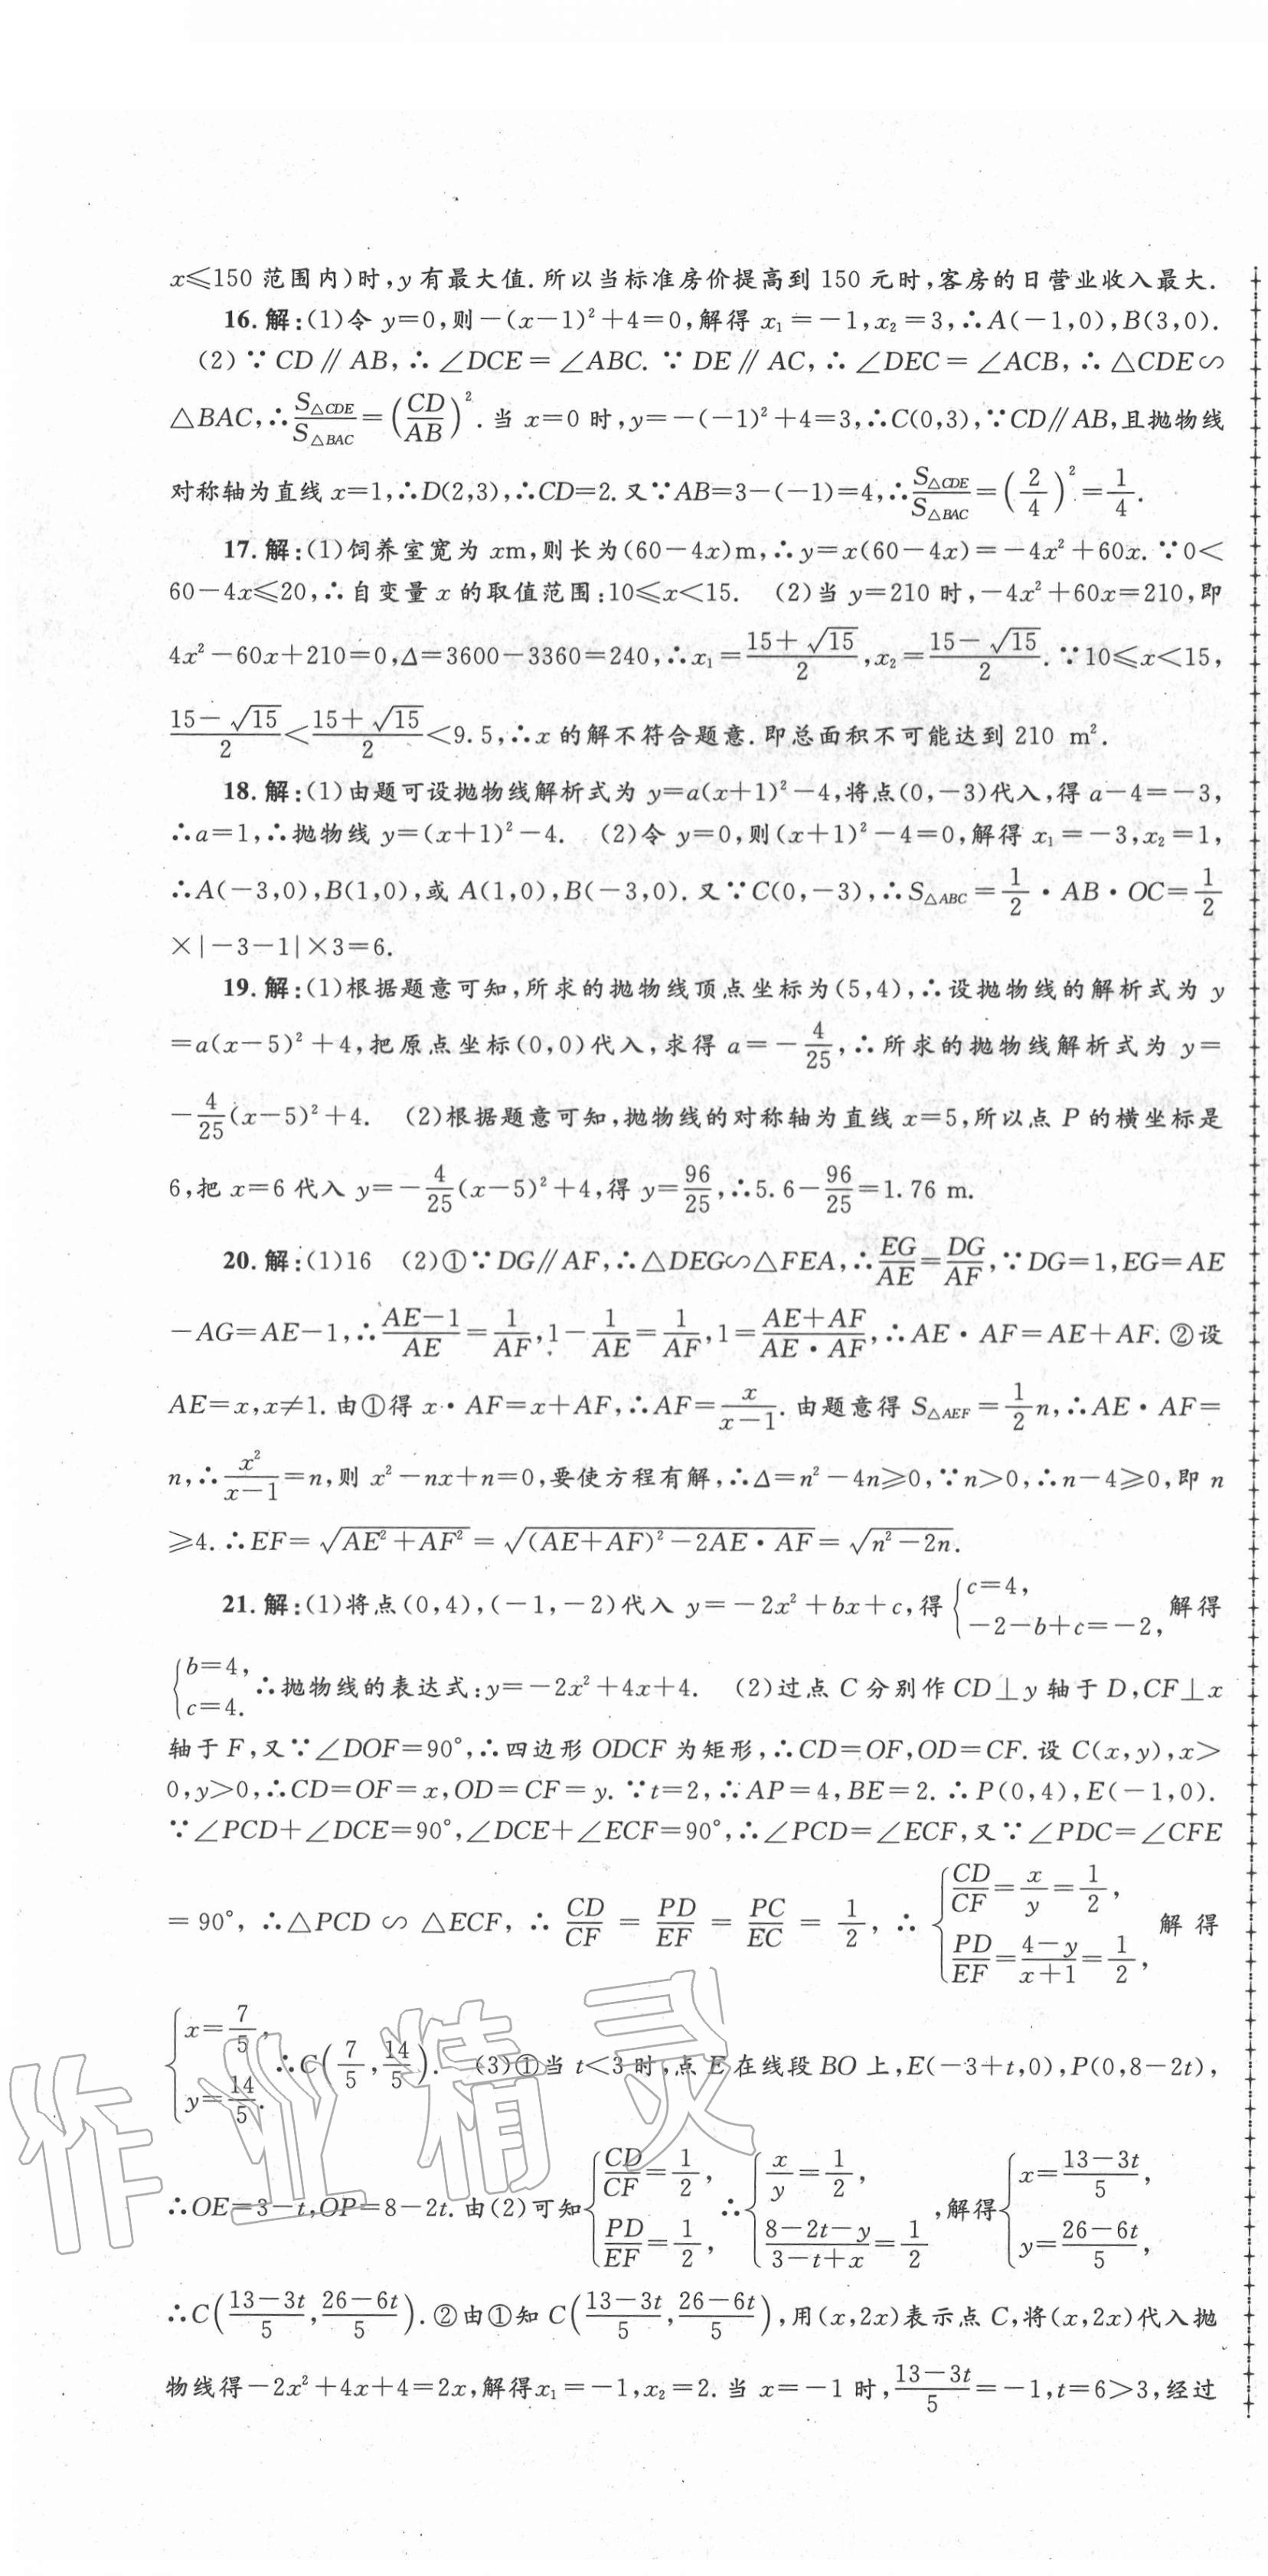 x≤150 范围内)时,y 有最大值.所以当标准房价提高到 150 元时,客房的日营业收入最大.
16.解:(1)令 y=0,则-(x-1)²+4=0,解得 x₁=-1,x₂=3,∴A(-1,0),B(3,0).
(2)∵CD∥AB,∴∠DCE=∠ABC.∵DE∥AC,∴∠DEC=∠ACB,∴△CDE∽
△BAC,∴S△CDE/S△BAC=(CD/AB)².当 x=0 时,y=-(-1)²+4=3,∴C(0,3),∵CD∥AB,且抛物线
对称轴为直线 x=1,∴D(2,3),∴CD=2.又∵AB=3-(-1)=4,∴S△CDE/S△BAC=(2/4)²=1/4.
17.解:(1)饲养室宽为 xm,则长为(60-4x)m,∴y=x(60-4x)=-4x²+60x.∵0<
60-4x≤20,∴自变量 x 的取值范围:10≤x<15. (2)当 y=210 时,-4x²+60x=210,即
4x²-60x+210=0,Δ=3600-3360=240,∴x₁=(15+√15)/2,x₂=(15-√15)/2.∵10≤x<15,
(15-√15)/2<(15+√15)/2<9.5,∴x 的解不符合题意.即总面积不可能达到 210 m².
18.解:(1)由题可设抛物线解析式为 y=a(x+1)²-4,将点(0,-3)代入,得 a-4=-3,
∴a=1,∴抛物线 y=(x+1)²-4. (2)令 y=0,则(x+1)²-4=0,解得 x₁=-3,x₂=1,
∴A(-3,0),B(1,0),或 A(1,0),B(-3,0).又∵C(0,-3),∴S△ABC=1/2·AB·OC=1/2
×|-3-1|×3=6.
19.解:(1)根据题意可知,所求的抛物线顶点坐标为(5,4),∴设抛物线的解析式为 y
=a(x-5)²+4,把原点坐标(0,0)代入,求得 a=-4/25,∴所求的抛物线解析式为 y=
-4/25(x-5)²+4. (2)根据题意可知,抛物线的对称轴为直线 x=5,所以点 P 的横坐标是
6,把 x=6 代入 y=-4/25(x-5)²+4,得 y=96/25,∴5.6-96/25=1.76 m.
20.解:(1)16 (2)①∵DG∥AF,∴△DEG∽△FEA,∴EG/AE=DG/AF,∵DG=1,EG=AE
-AG=AE-1,∴(AE-1)/AE=1/AF,1-1/AE=1/AF,1=(AE+AF)/(AE·AF),∴AE·AF=AE+AF.②设
AE=x,x≠1.由①得 x·AF=x+AF,∴AF=x/(x-1).由题意得 S△AEF=1/2n,∴AE·AF=
n,∴x²/(x-1)=n,则 x²-nx+n=0,要使方程有解,∴Δ=n²-4n≥0,∵n>0,∴n-4≥0,即 n
≥4.∴EF=√(AE²+AF²)=√((AE+AF)²-2AE·AF)=√(n²-2n).
21.解:(1)将点(0,4),(-1,-2)代入 y=-2x²+bx+c,得{c=4, -2-b+c=-2,解得
{b=4, c=4.∴抛物线的表达式:y=-2x²+4x+4. (2)过点 C 分别作 CD⊥y 轴于 D,CF⊥x
轴于 F,又∵∠DOF=90°,∴四边形 ODCF 为矩形,∴CD=OF,OD=CF.设 C(x,y),x>
0,y>0,∴CD=OF=x,OD=CF=y.∵t=2,∴AP=4,BE=2.∴P(0,4),E(-1,0).
∵∠PCD+∠DCE=90°,∠DCE+∠ECF=90°,∴∠PCD=∠ECF,又∵∠PDC=∠CFE
=90°,∴△PCD∽△ECF,∴CD/CF=PD/EF=PC/EC=1/2,∴{CD/CF=x/y=1/2, PD/EF=(4-y)/(x+1)=1/2,解得
{x=7/5, y=14/5.∴C(7/5,14/5). (3)①当 t<3 时,点 E 在线段 BO 上,E(-3+t,0),P(0,8-2t),
∴OE=3-t,OP=8-2t.由(2)可知{CD/CF=1/2, PD/EF=1/2,∴{x/y=1/2, (8-2t-y)/(3-t+x)=1/2,解得{x=(13-3t)/5, y=(26-6t)/5,
∴C((13-3t)/5,(26-6t)/5).②由①知 C((13-3t)/5,(26-6t)/5),用(x,2x)表示点 C,将(x,2x)代入抛
物线得-2x²+4x+4=2x,解得x₁=-1,x₂=2.当 x=-1 时,(13-3t)/5=-1,t=6>3,经过
作业精灵